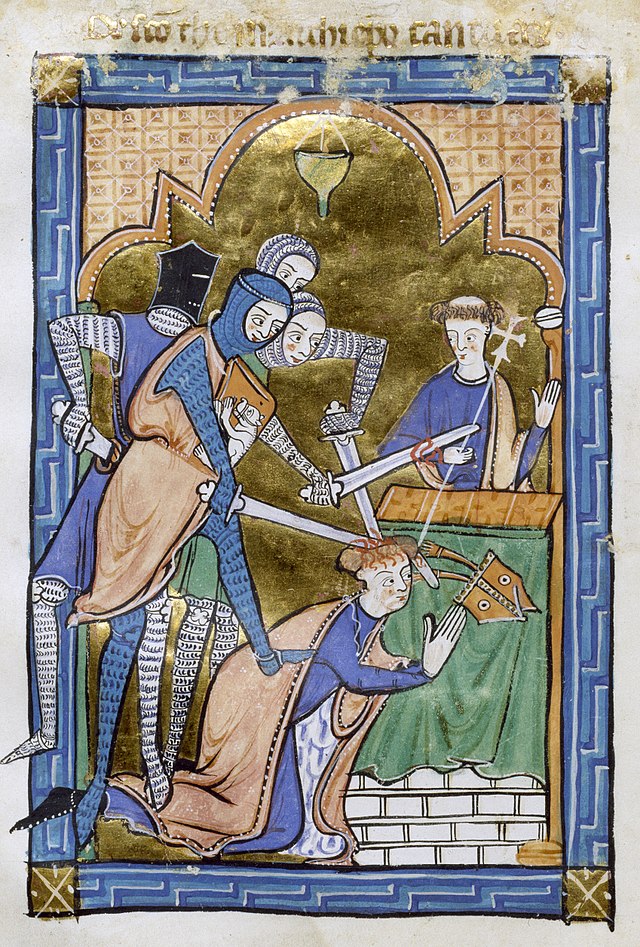 De sco thoma archiepo cantuar